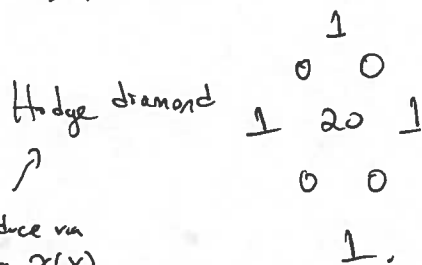 1
0 0
Hodge diamond 1 20 1
0 0
via
χ(X) 1.